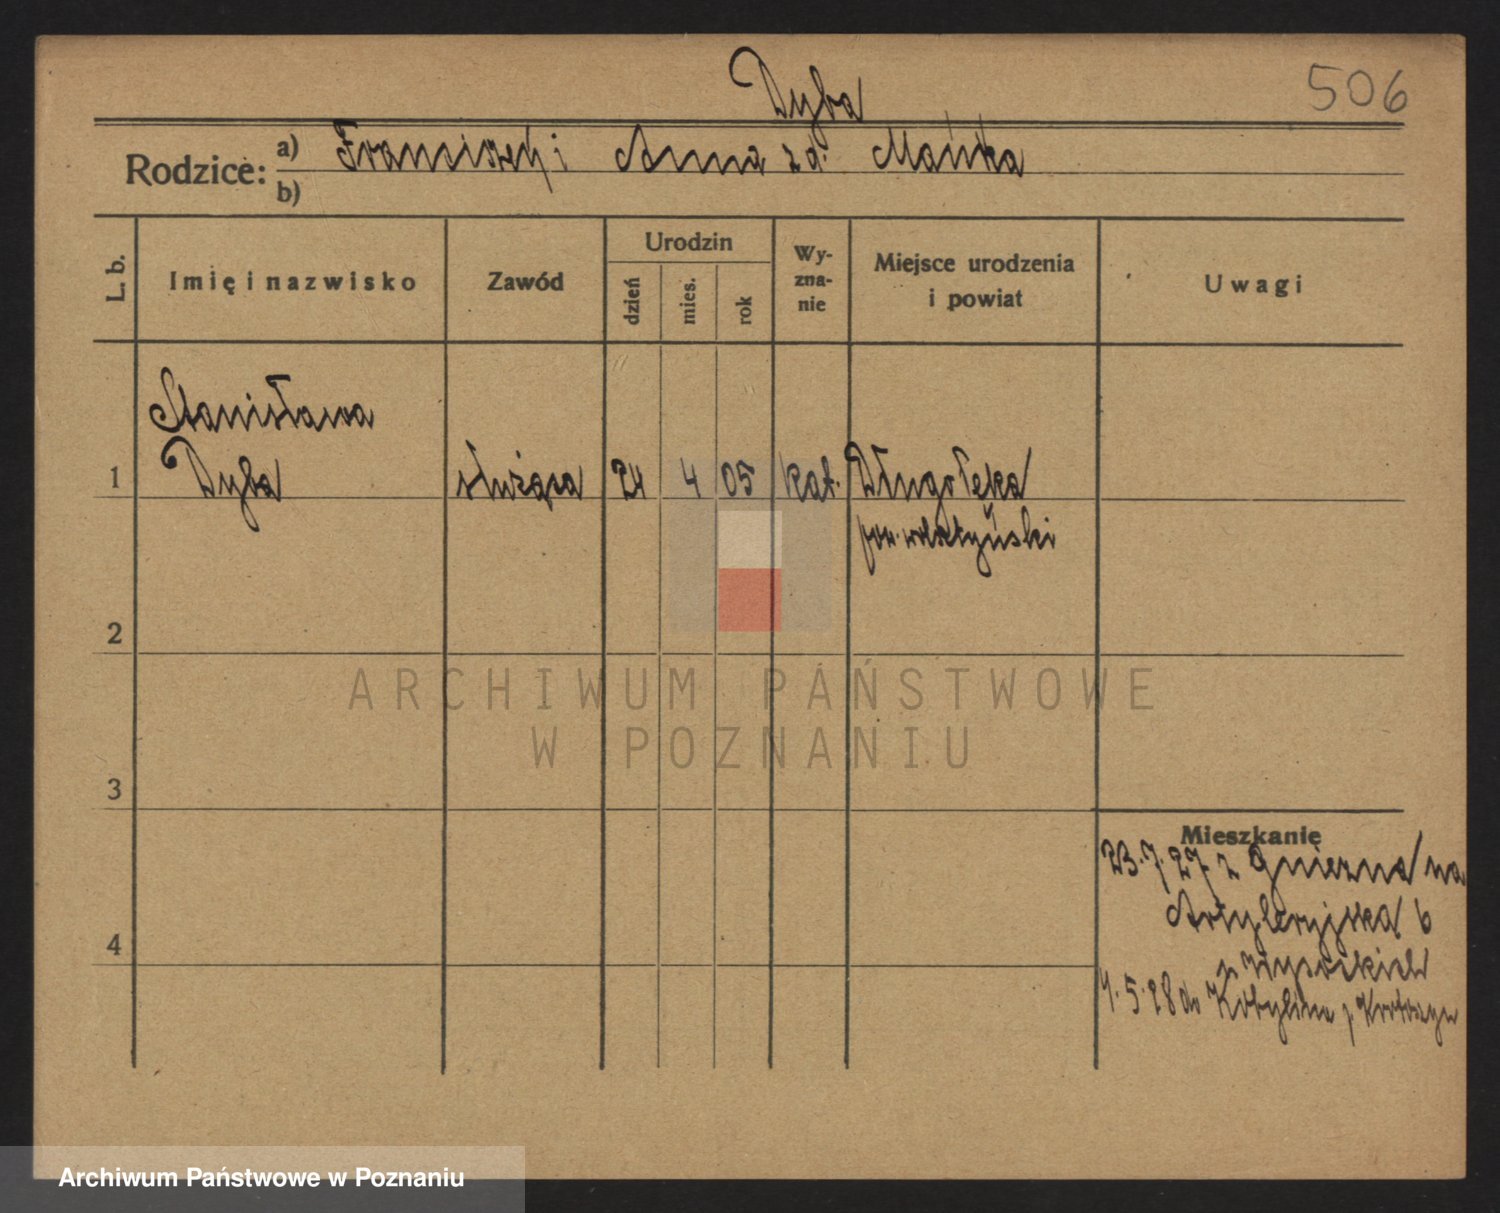 Dyba
506
Rodzice: a) Franciszek i Anna z d. Mańka
b)
L. b.
Imię i nazwisko
Zawód
Urodzin
dzień
mies.
rok
Wy-
zna-
nie
Miejsce urodzenia
i powiat
Uwagi
Stanisława
1 Dyba służąca 24 4 05 kat. Długołęka
pow.
2
ARCHIWUM PAŃSTWOWE
W POZNANIU
3
Mieszkanie
23.7.27 z Gniezna na
Artyleryjska 6
z Wysockich
4
4.5.28 do Kobylina p. Krotoszyn
Archiwum Państwowe w Poznaniu